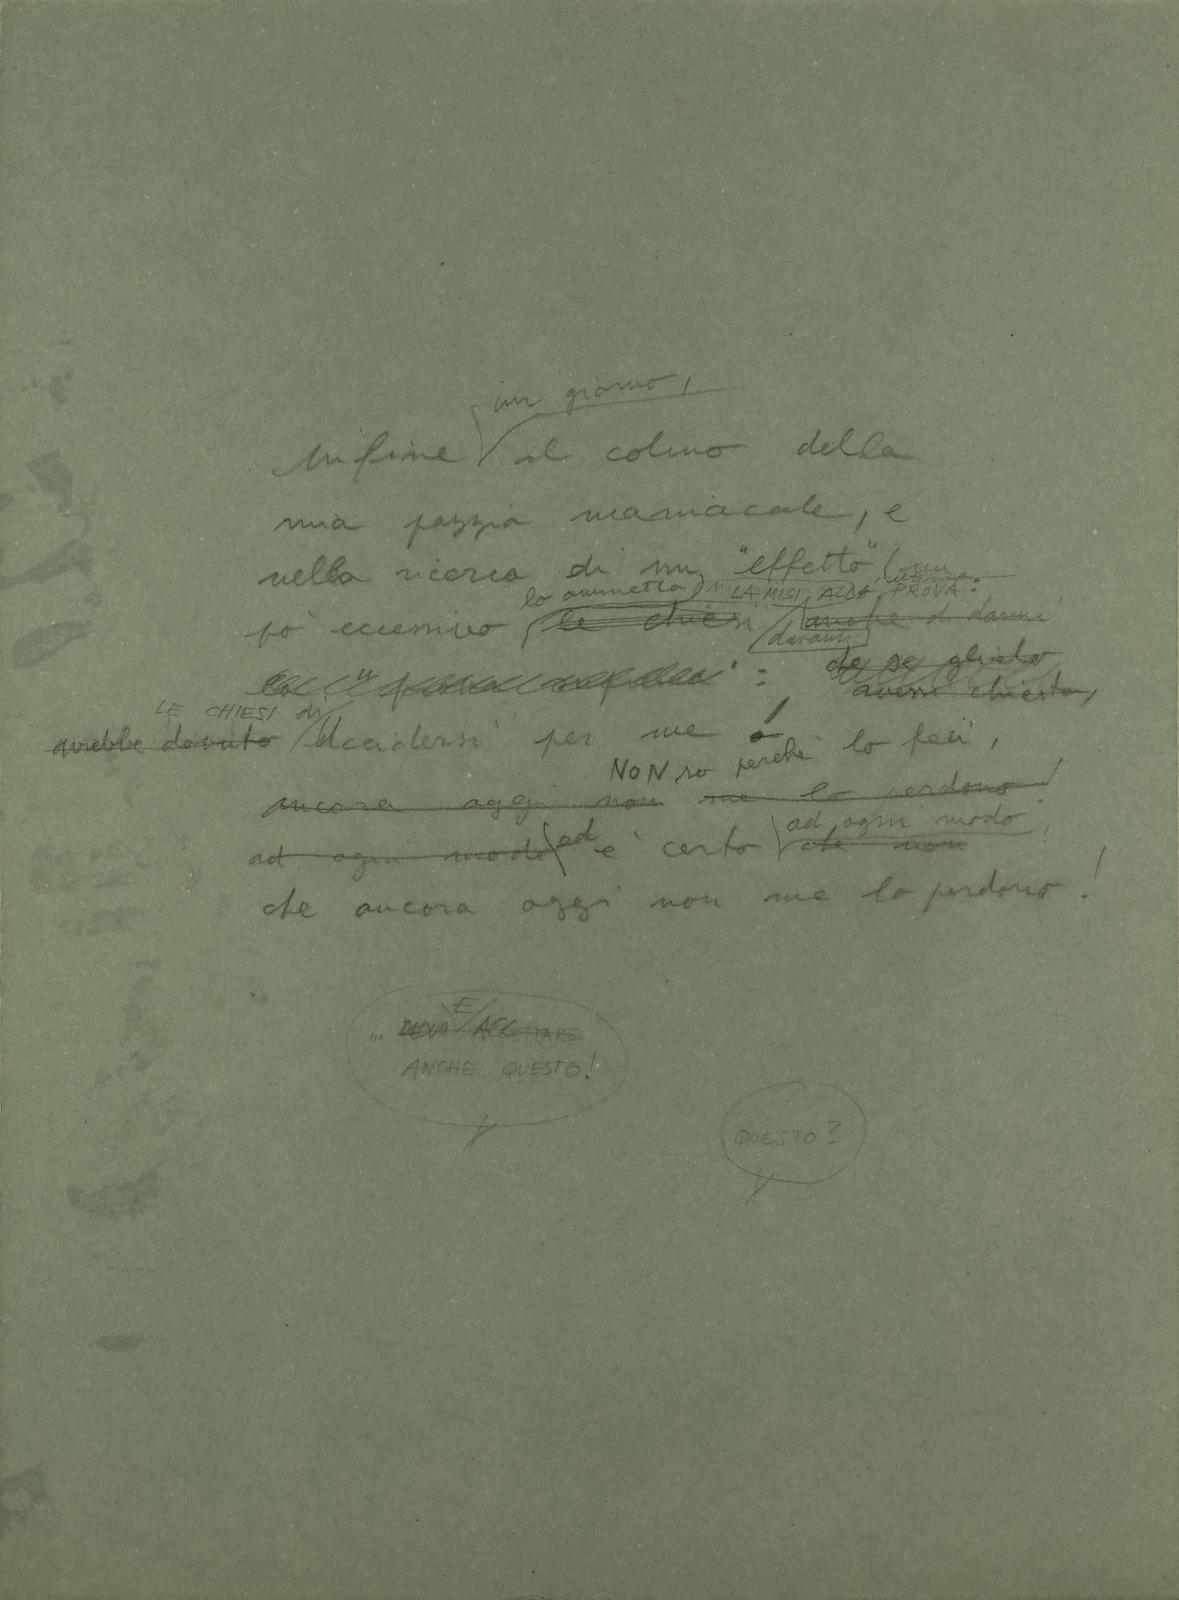 un giorno,
Infine il colmo della
mia pazzia maniacale, e
nella ricerca di un "effetto" (un
lo ammetto) LA MISI ALLA PROVA:
pò eccessivo le chiesi anche di darmi
davanti
: che se glielo
avessi chiesto,
LE CHIESI di
avrebbe dovuto uccidersi per me lo feci,
NON so perché
ancora oggi non me lo perdono!
ad ogni modo
ad ogni modo ed è certo che non
che ancora oggi non me lo perdono!
E
... ACCETTARE
ANCHE QUESTO!
QUESTO?